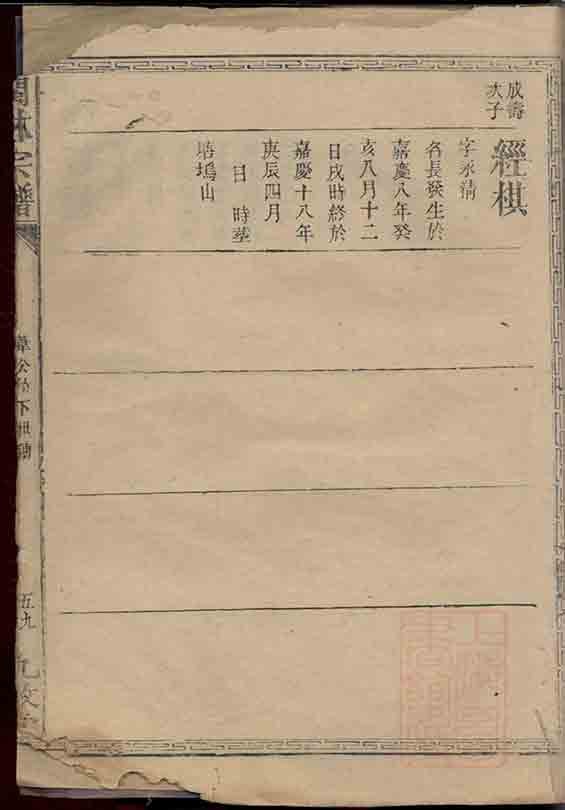 成壽
次子
經棋
字永清
名長發生於
嘉慶八年癸
亥八月十二
日戌時終於
嘉慶十八年
庚辰四月
日 時塟
塢山
林宗譜
公 下世
五九